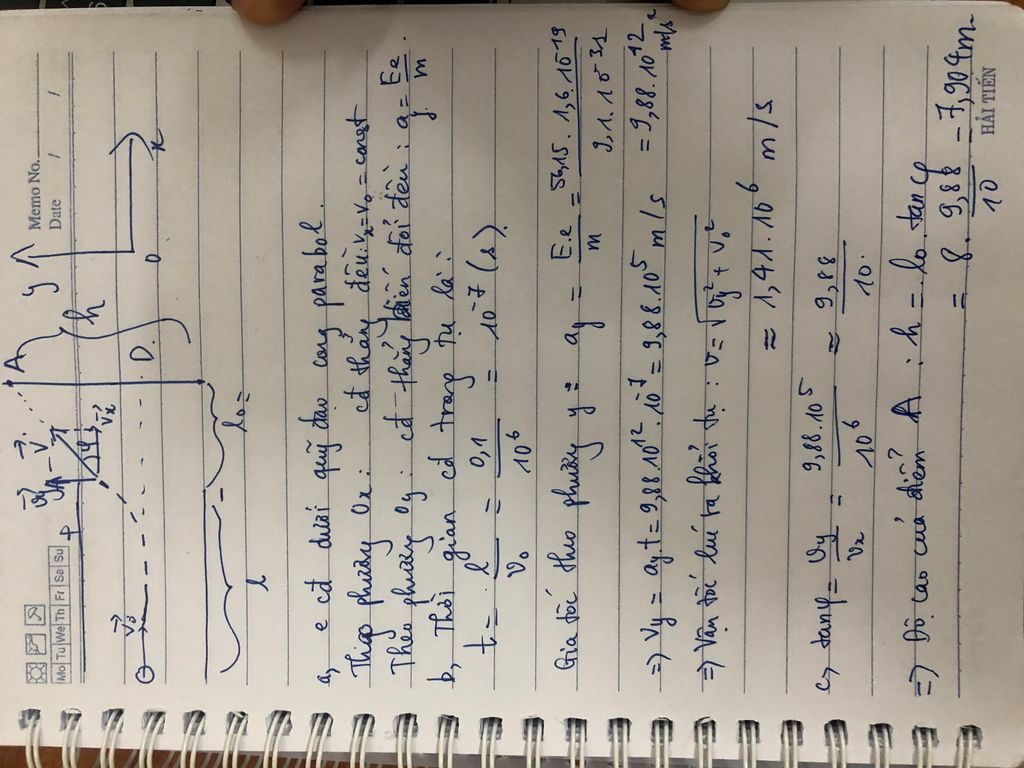 Memo No.
Date / /
Mo Tu We Th Fr Sa Su
A
y
h
+
D
O
x
l
l₀ =
a, e cđ dưới quỹ đạo cong parabol.
Theo phương Ox: cđ thẳng đều: vₓ = v₀ = const
Theo phương Oy: cđ thẳng biến đổi đều: a_y = Ee/m
b, Thời gian cđ trong tụ là:
t = l/v₀ = 0,1/10⁶ = 10⁻⁷ (s).
Gia tốc theo phương y: a_y = E.e/m = 56,15 . 1,6.10⁻¹⁹/9,1.10⁻³¹
=> v_y = a_y t = 9,88.10¹².10⁻⁷ = 9,88.10⁵ m/s = 9,88.10¹² m/s²
=> Vận tốc lúc ra khỏi tụ: v = √(v_y² + v₀²)
≈ 1,41.10⁶ m/s
c, tanφ = v_y/vₓ = 9,88.10⁵/10⁶ ≈ 9,88/10.
=> Độ cao của điểm A: h = l₀.tanφ
= 8. 9,88/10 = 7,904m
HẢI TIẾN